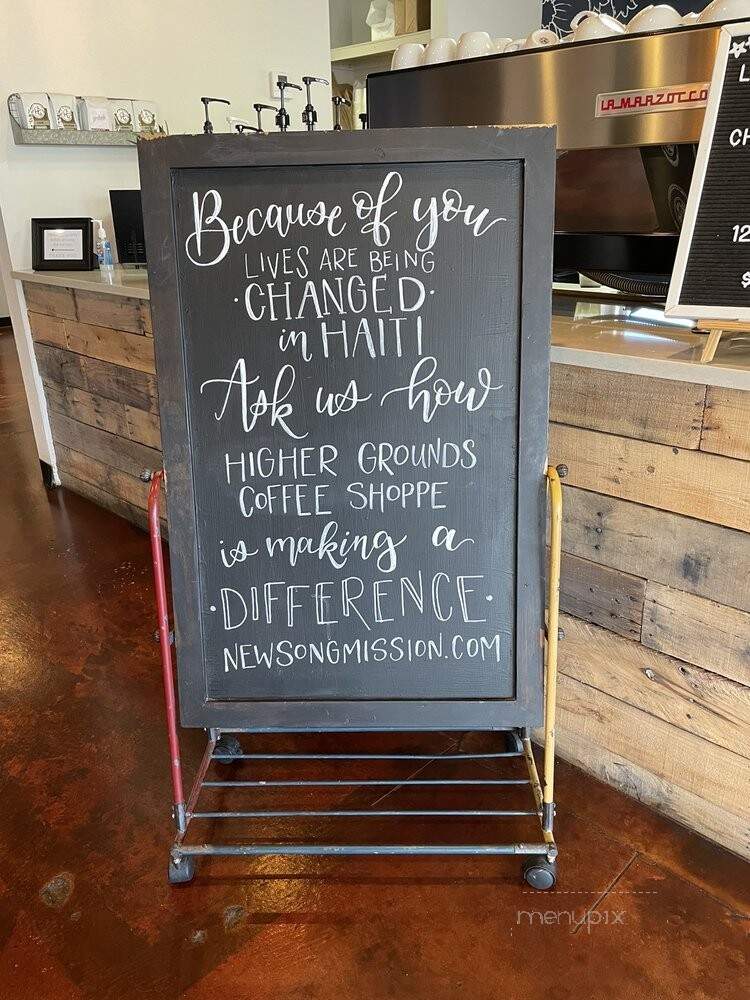 LA MARZOCCO
Because of you
LIVES ARE BEING
·CHANGED·
in HAITI
Ask us how
HIGHER GROUNDS
COFFEE SHOPPE
is making a
·DIFFERENCE·
NEWSONGMISSION.COM
L
CH
12
$
menupix